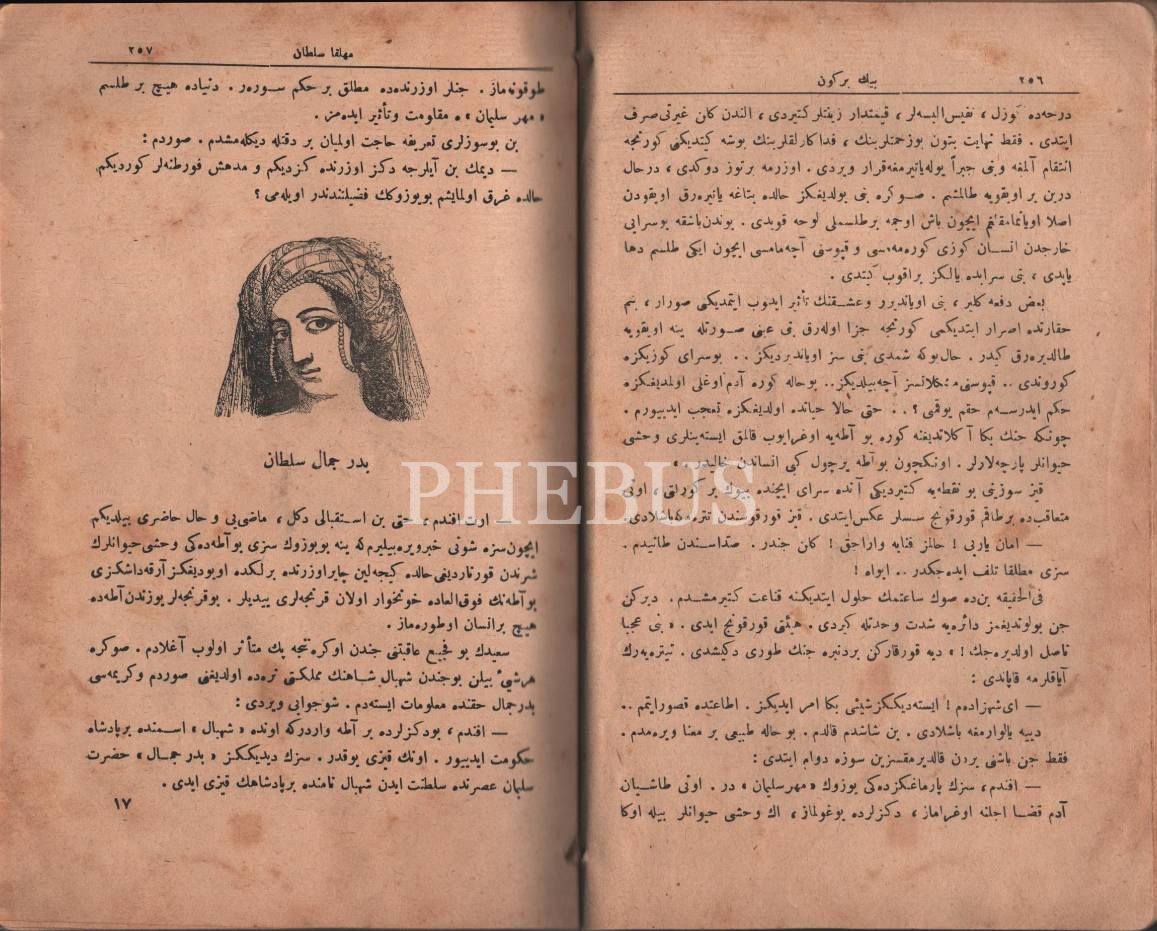 ٢٥٦
بيك بر كون
درجه‌ده كوزل ، نفيس البسه‌لر ، قيمتدار زينتلر كتيردى ، الندن كلن غيرتى صرف
ايتدى . فقط نهايت بتون بو زحمتلرينك ، فداكارلقلرينك بوشه كيتديكنى كورنجه
انتقام آلمغه و بنى جبراً يوله ياتيرمغه قرار ويردى . اوزرمه بر توز دوكدى ، درحال
درين بر اويقويه طالمشم . صوكره بنى بولديغكز حالده يتاغه ياتيره‌رق اويقودن
اصلا اويانمامقلغم ايچون باش اوجمه بر طلسملى لوحه قويدى . بوندن باشقه بو سرايى
خارجدن انسان كوزى كورمه‌مسى و قپوسنى آچه‌مامسى ايچون ايكى طلسم دها
ياپدى ، بنى سرايده يالكز براقوب كيتدى .
بعض دفعه كلير ، بنى اوياندیرر و عشقنك تأثير ايدوب ايتمديكنى صورار ، بنم
حقارتده اصرار ايتديكمى كورنجه جزا اوله‌رق بنى عينى صورتله ينه اويقويه
طالديره‌رق كيدر . حال بوكه شمدى بنى سز اويانديرديكز . . بو سراى كوزيكزه
كوروندى . . قپوسنى مشكلاتسز آچه‌بيلديكز . . بو حاله كوره آدم اوغلى اولمديغكزه
حكم ايدرسه‌م حقم يوقمى ؟ . . حتى حالا حياتده اولديغكزه تعجب ايدييورم .
چونكه جنك بكا آكلاتديغنه كوره بو آطه‌يه اوغرايوب قالمق ايسته‌ينلرى وحشى
حيوانلر پارچه‌لارلر . اونكچون بو آطه بر چول كبى انساندن خاليدر . »
قيز سوزينى بو نقطه‌يه كتيرديكى آنده سراى ايچنده بيوك بر كورلتى ، اونى
متعاقبده بر طاقم قورقونج سسلر عكس ايتدى . قيز قورقوسندن تتره‌مكه باشلادى .
— امان ياربى ! حالمز فنايه واراجق ! كلن جندر . صداسندن طانيدم .
سزى مطلقا تلف ايده‌جكدر . . ايواه !
فى الحقيقه بن‌ده صوك ساعتمك حلول ايتديكنه قناعت كتيرمشدم . ديركن
جن بولونديغمز دائره‌يه شدت و حدتله كيردى . هيئتى قورقونج ايدى . « بنى عجبا
ناصل اولديره‌جك ! » ديه قورقاركن بردنبره جنك طورى دكيشدى . تيتره‌يه‌رك
آياقلرمه قاپاندى :
— اى شهزاده‌م ! ايسته‌ديككز شيئى بكا امر ايديكز . اطاعتده قصور ايتمم . .
دييه يالوارمغه باشلادى . بن شاشدم قالدم . بو حاله طبيعى بر معنا ويره‌مدم .
فقط جن باشنى يردن قالديرمقسزين سوزه دوام ايتدى :
— افندم ، سزك پارماغكزده‌كى يوزوك « مهر سليمان » در . اونى طاشييان
آدم قضا اجلنه اوغراماز ، دكزلرده بوغولماز ، اك وحشى حيوانلر بيله اوكا
٢٥٧
مهلقا سلطان
طوقونه‌ماز . جنلر اوزرنده‌ده مطلق بر حكم سورر . دنياده هيچ بر طلسم
« مهر سليمان » ه مقاومت و تأثير ايده‌مز .
بن بو سوزلرى تعريفه حاجت اولميان بر دقتله ديكله‌مشدم . صوردم :
— ديمك بن آيلرجه دكز اوزرنده كزديكم و مدهش فورطنه‌لر كورديكم
حالده غرق اولمايشم بو يوزوكك فضيلتندندر اويله‌مى ؟
بدر جمال سلطان
— اوت افندم ، حتى بن استقبالى دكل ، ماضى‌يى و حال حاضرى بيلديكم
ايچون سزه شونى خبر ويره‌بيليرم كه ينه بو يوزوك سزى بو آطه‌ده‌كى وحشى حيوانلرك
شرندن قورتارديغى حالده كيجه‌لين چاير اوزرنده برلكده اويوديغكز آرقه‌داشكزى
بو آطه‌نك فوق‌العاده خونخوار اولان قرنجه‌لرى ييديلر . بو قرنجه‌لر يوزندن آطه‌ده
هيچ بر انسان اوطوره‌ماز .
سعيدك بو فجيع عاقبتنى جندن اوكره‌نجه پك متأثر اولوب آغلادم . صوكره
هر شيئى بيلن بو جندن شهبال شاهنك مملكتى نره‌ده اولديغنى صوردم و كريمه‌سى
بدر جمال حقنده معلومات ايسته‌دم . شو جوابى ويردى :
— افندم ، بو دكزلرده بر آطه واردركه اونده « شهبال » اسمنده بر پادشاه
حكومت ايدييور . اونك قيزى يوقدر . سزك ديديككز « بدر جمال » حضرت
سليمان عصرنده سلطنت ايدن شهبال نامنده بر پادشاهك قيزى ايدى .
١٧
PHEBUS